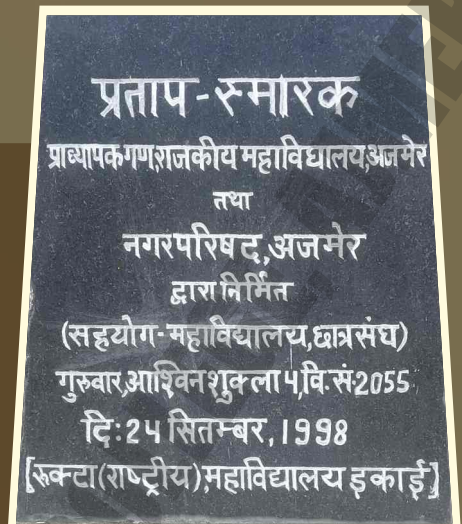 प्रताप-स्मारक
प्राध्यापकगण,राजकीय महाविद्यालय,अजमेर
तथा
नगरपरिषद,अजमेर
द्वारा निर्मित
(सहयोग-महाविद्यालय,छात्रसंघ)
गुरुवार,आश्विन शुक्ला ५,वि.सं.2055
दि:24 सितम्बर,1998
[रूक्टा(राष्ट्रीय),महाविद्यालय इकाई]